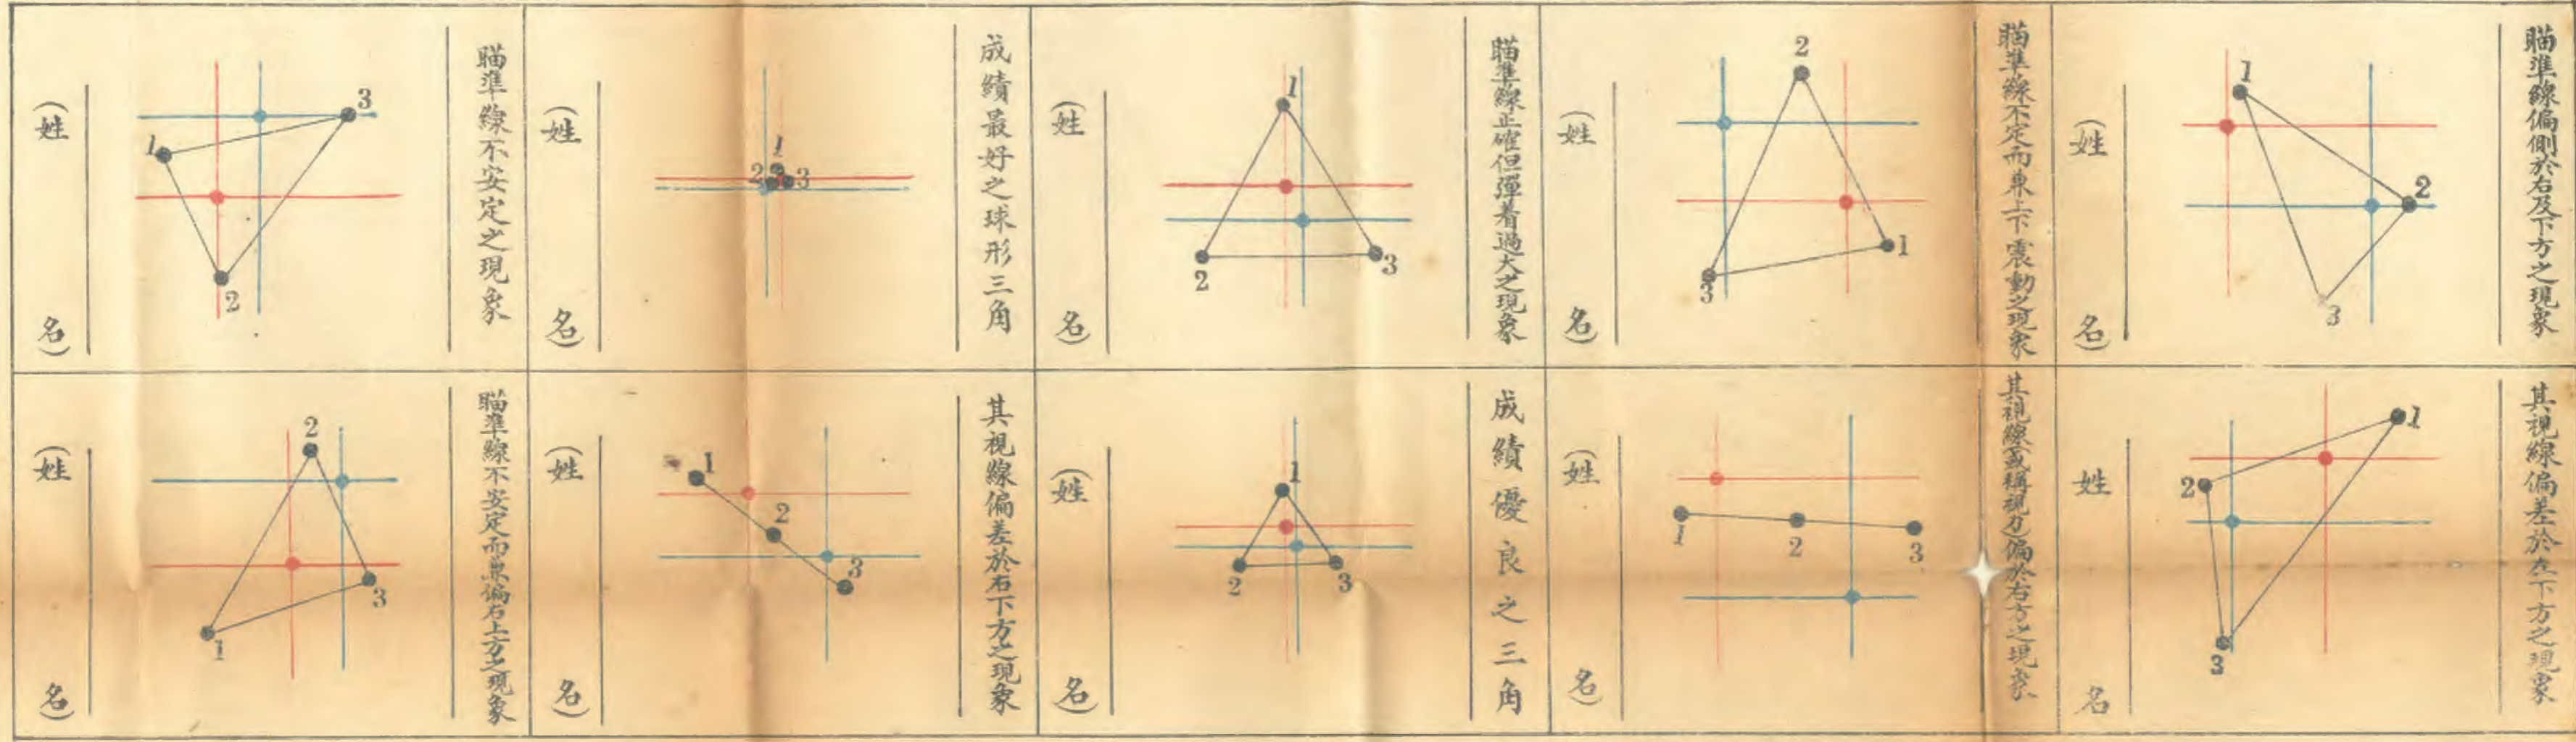 瞄準線偏側於右及下方之現象
1
2
3
(姓 名)
瞄準線不定而兼上下震動之現象
2
1
3
(姓 名)
瞄準線正確但彈着過大之現象
1
2
3
(姓 名)
成績最好之球形三角
1
2
3
(姓 名)
瞄準線不安定之現象
3
1
2
(姓 名)
其視線偏差於左下方之現象
1
2
3
姓 名
其視線或稱視力偏於右方之現象
1
2
3
(姓 名)
成績優良之三角
1
2
3
(姓 名)
其視線偏差於右下方之現象
1
2
3
(姓 名)
瞄準線不安定而兼偏右上方之現象
2
3
1
(姓 名)